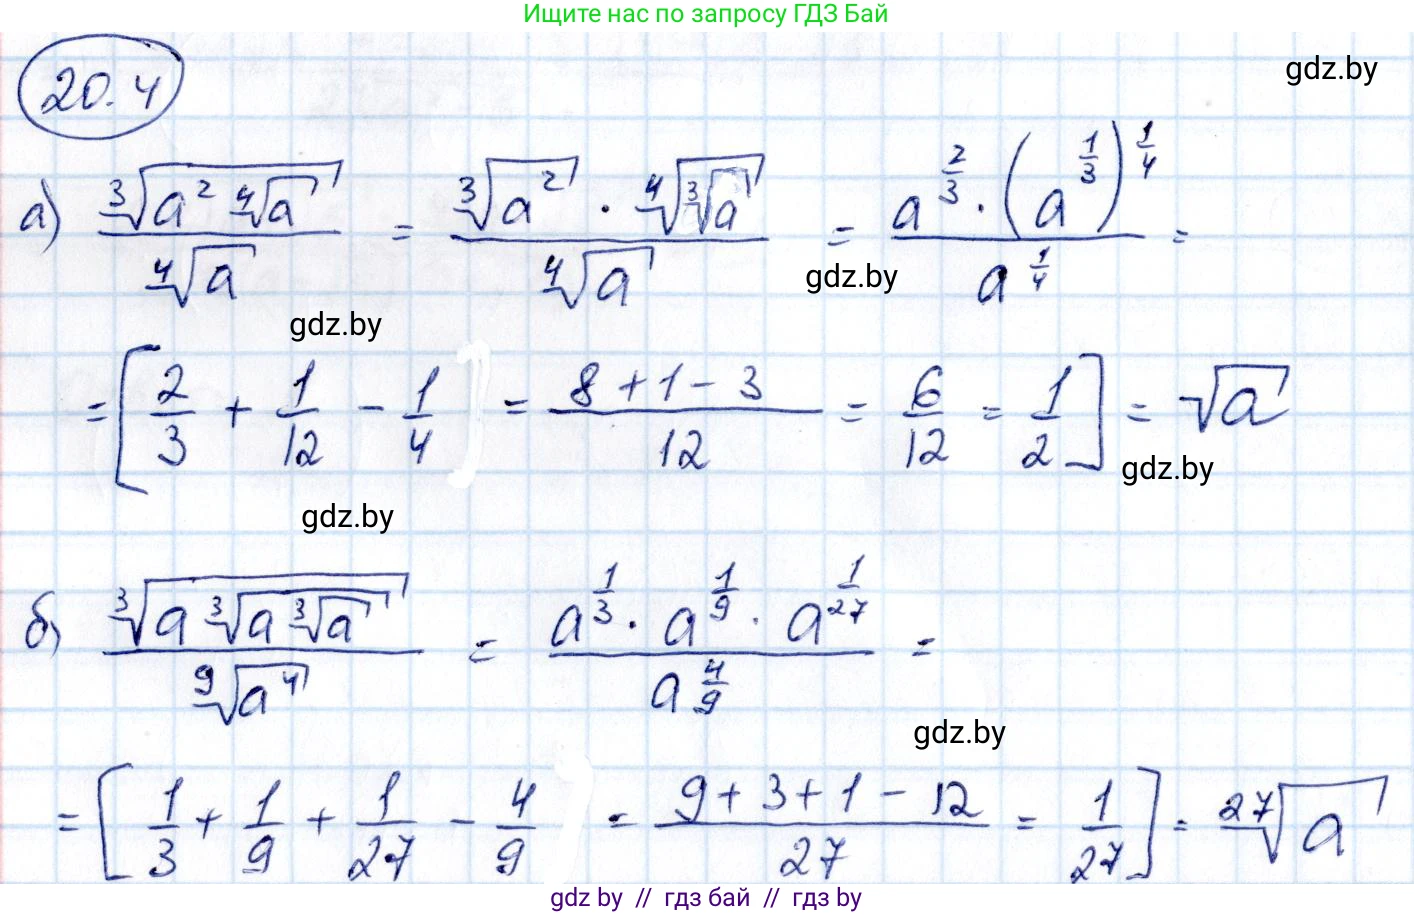 Ищите нас по запросу ГДЗ Бай
20.4
gdz.by
а) ∛(a² ∜a) / ∜a = ∛(a²) · ∜(∛a) / ∜a = a^(2/3) · (a^(1/3))^(1/4) / a^(1/4) =
gdz.by
gdz.by
= [2/3 + 1/12 − 1/4 = (8 + 1 − 3)/12 = 6/12 = 1/2] = √a
gdz.by
gdz.by
б) ∛(a ∛(a ∛a)) / ⁹√(a⁴) = a^(1/3) · a^(1/9) · a^(1/27) / a^(4/9) =
gdz.by
= [1/3 + 1/9 + 1/27 − 4/9 = (9 + 3 + 1 − 12)/27 = 1/27] = ²⁷√a
gdz.by // гдз бай // гдз.by